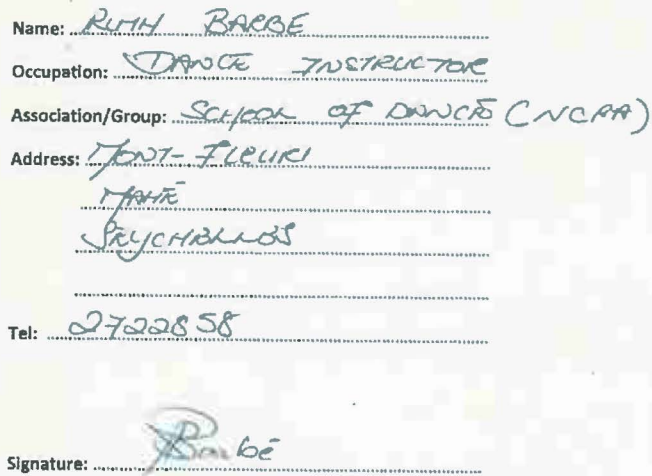 Name: RUTH BARBE
Occupation: DANCE INSTRUCTOR
Association/Group: SCHOOL OF DANCE (NCPA)
Address: MONT-FLEURI
MAHÉ
SEYCHELLES
Tel: 2722858
Signature: Barbé